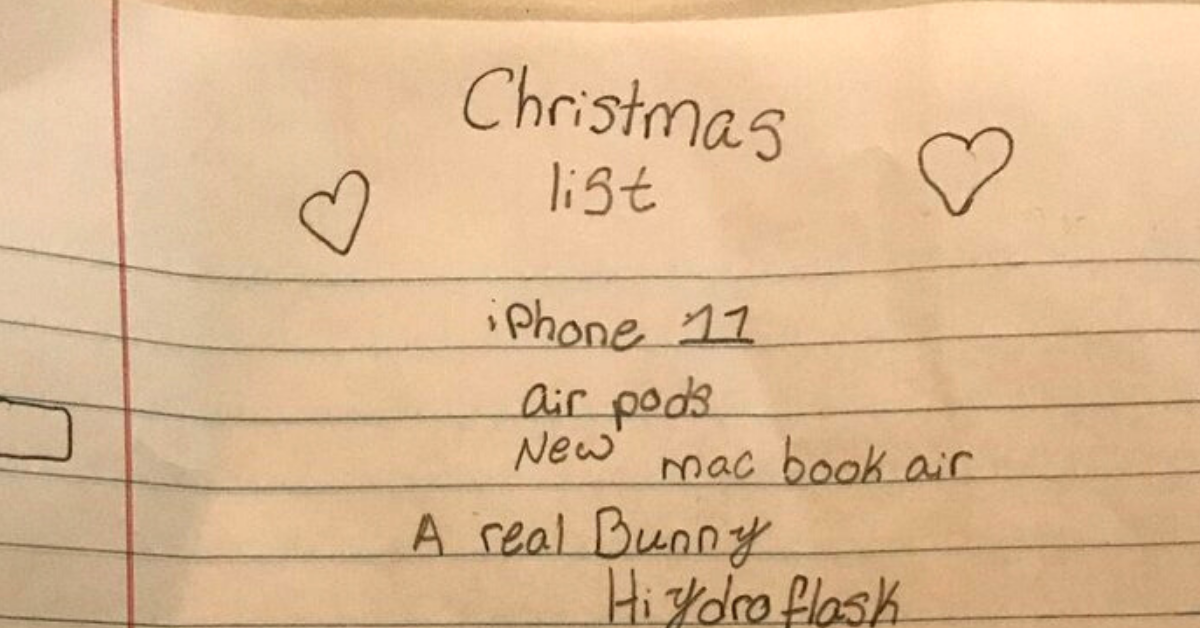 Christmas
list
iPhone 11
air pods
New mac book air
A real Bunny
Hiydro flask